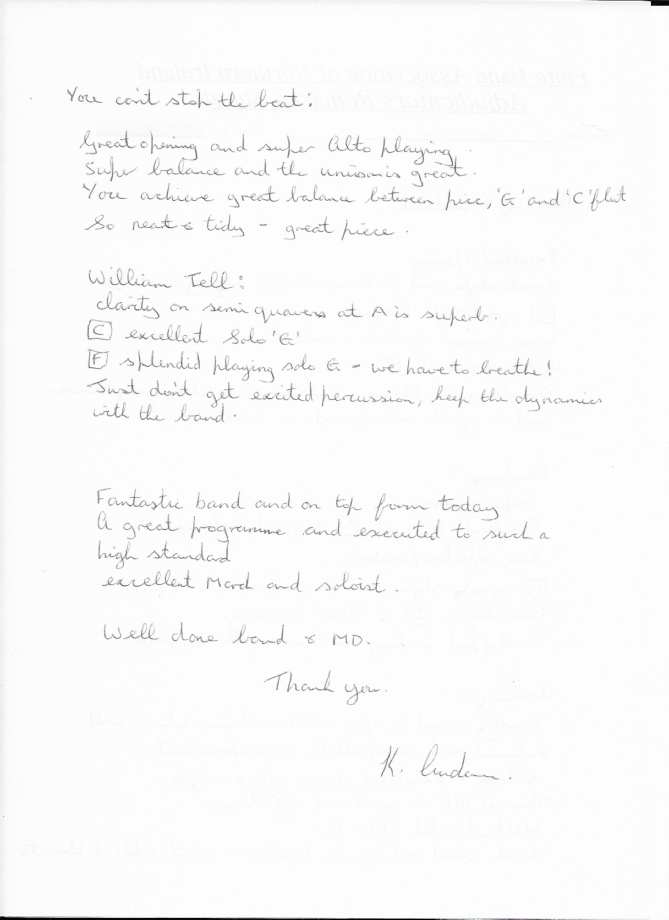 You can't stop the beat:
Great opening and super Alto playing.
Super balance and the unison is great.
You achieve great balance between picc, 'G' and 'C' flut
So neat & tidy - great piece.
William Tell:
clarity on semi quavers at A is superb.
C excellent Solo 'G'
F splendid playing solo G - we have to breathe!
Just don't get excited percussion, keep the dynamics
with the band.
Fantastic band and on top form today
A great programme and executed to such a
high standard
excellent March and soloist.
Well done band & MD.
Thank you.
K.